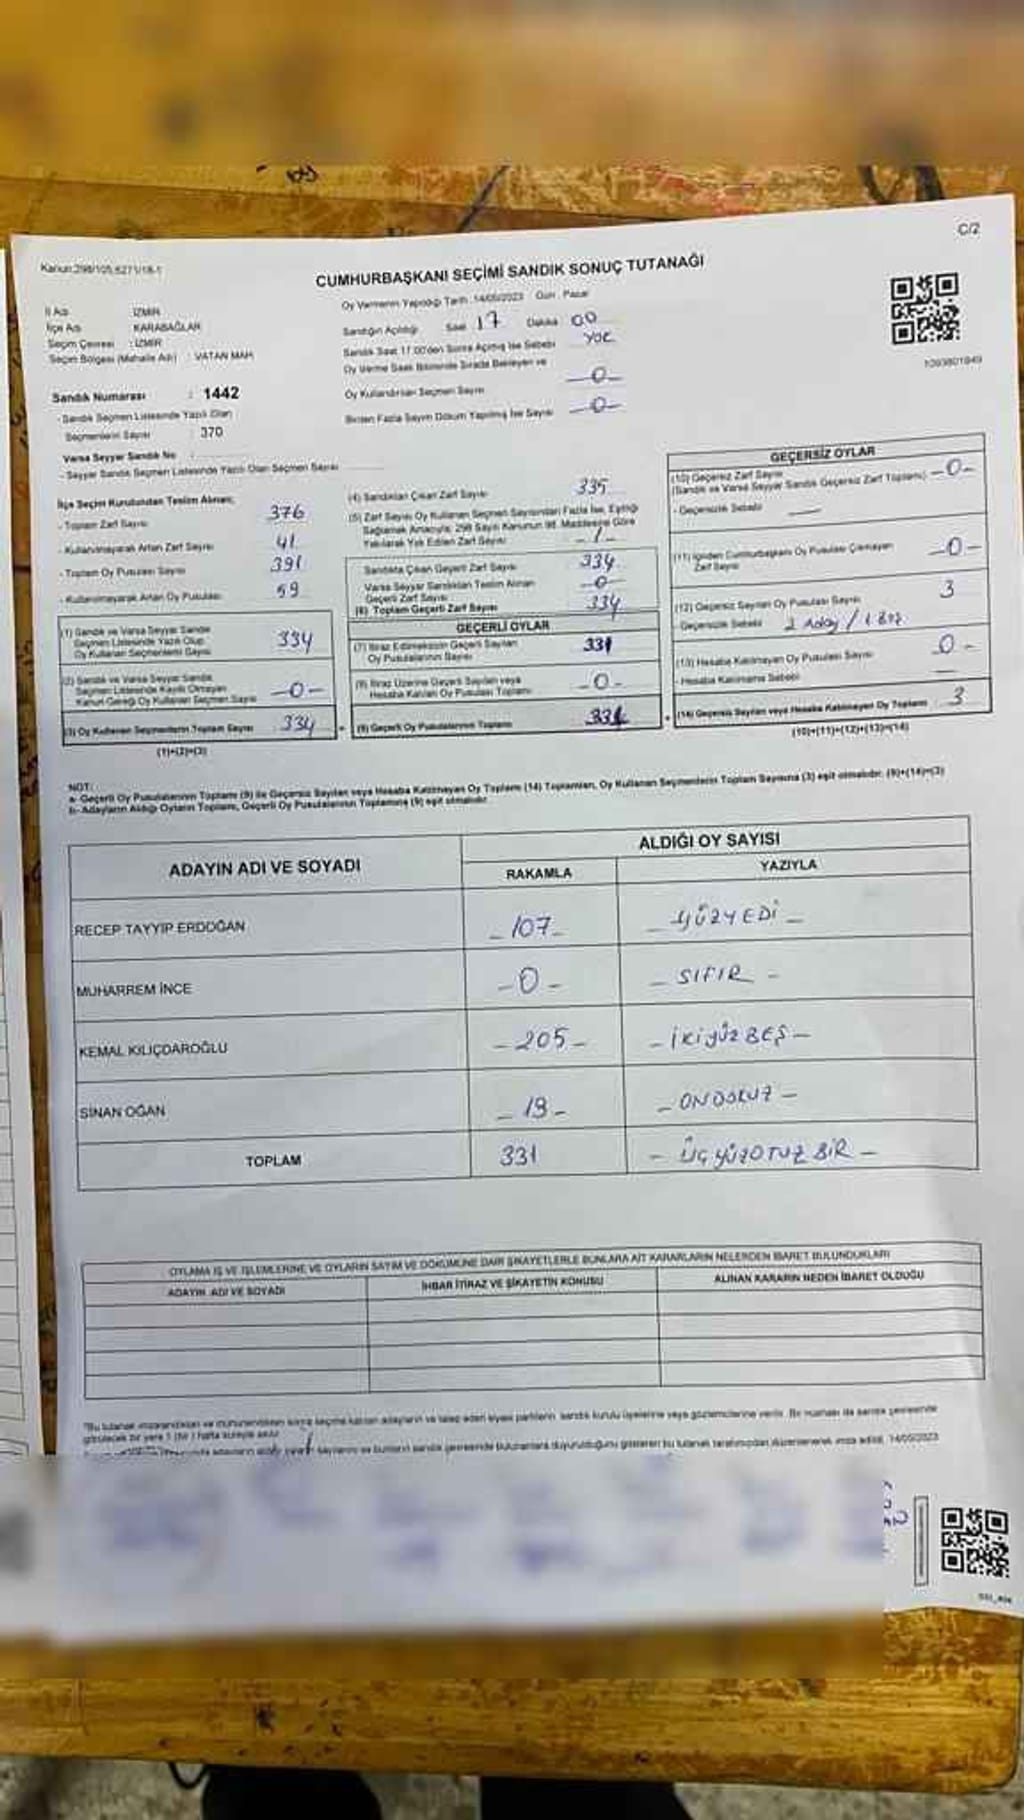 C/2
Kanun:298/105,6271/18-1
CUMHURBAŞKANI SEÇİMİ SANDIK SONUÇ TUTANAĞI
İl Adı : İZMİR
İlçe Adı : KARABAĞLAR
Seçim Çevresi : İZMİR
Seçim Bölgesi (Mahalle Adı) : VATAN MAH
Oy Vermenin Yapıldığı Tarih :14/05/2023 Gün : Pazar
Sandığın Açıldığı Saat 17 Dakika 00
Sandık Saat 17:00'den Sonra Açılmış İse Sebebi YOK
Oy Verme Saati Bitiminde Sırada Bekleyen ve
Oy Kullandırılan Seçmen Sayısı -0-
Birden Fazla Sayım Döküm Yapılmış İse Sayısı -0-
1093801949
Sandık Numarası : 1442
- Sandık Seçmen Listesinde Yazılı Olan
Seçmenlerin Sayısı : 370
Varsa Seyyar Sandık No :
- Seyyar Sandık Seçmen Listesinde Yazılı Olan Seçmen Sayısı
İlçe Seçim Kurulundan Teslim Alınan;
- Toplam Zarf Sayısı 376
- Kullanılmayarak Artan Zarf Sayısı 41
- Toplam Oy Pusulası Sayısı 391
- Kullanılmayarak Artan Oy Pusulası 59
(1) Sandık ve Varsa Seyyar Sandık
Seçmen Listesinde Yazılı Olup
Oy Kullanan Seçmenlerin Sayısı 334
(2) Sandık ve Varsa Seyyar Sandık
Seçmen Listesinde Kayıtlı Olmayan
Kanun Gereği Oy Kullanan Seçmen Sayısı -0-
(3) Oy Kullanan Seçmenlerin Toplam Sayısı 334
(1)+(2)=(3)
(4) Sandıktan Çıkan Zarf Sayısı 335
(5) Zarf Sayısı Oy Kullanan Seçmen Sayısından Fazla İse, Eşitliği
Sağlamak Amacıyla; 298 Sayılı Kanunun 98. Maddesine Göre
Yakılarak Yok Edilen Zarf Sayısı -1-
Sandıkta Çıkan Geçerli Zarf Sayısı 334
Varsa Seyyar Sandıktan Teslim Alınan
Geçerli Zarf Sayısı -0-
(6) Toplam Geçerli Zarf Sayısı 334
GEÇERLİ OYLAR
(7) İtiraz Edilmeksizin Geçerli Sayılan
Oy Pusulalarının Sayısı 331
(8) İtiraz Üzerine Geçerli Sayılan veya
Hesaba Katılan Oy Pusulası Toplamı -0-
(9) Geçerli Oy Pusulalarının Toplamı 331
GEÇERSİZ OYLAR
(10) Geçersiz Zarf Sayısı
(Sandık ve Varsa Seyyar Sandık Geçersiz Zarf Toplamı) -0-
- Geçersizlik Sebebi
(11) İçinden Cumhurbaşkanı Oy Pusulası Çıkmayan
Zarf Sayısı -0-
(12) Geçersiz Sayılan Oy Pusulası Sayısı 3
- Geçersizlik Sebebi 2 Aday / 1 Boş
(13) Hesaba Katılmayan Oy Pusulası Sayısı 0 -
- Hesaba Katılmama Sebebi
(14) Geçersiz Sayılan veya Hesaba Katılmayan Oy Toplamı 3
(10)+(11)+(12)+(13)=(14)
NOT:
a- Geçerli Oy Pusulalarının Toplamı (9) ile Geçersiz Sayılan veya Hesaba Katılmayan Oy Toplamı (14) Toplamları, Oy Kullanan Seçmenlerin Toplam Sayısına (3) eşit olmalıdır. (9)+(14)=(3)
b- Adayların Aldığı Oyların Toplamı, Geçerli Oy Pusulalarının Toplamına (9) eşit olmalıdır.
ADAYIN ADI VE SOYADI ALDIĞI OY SAYISI
RAKAMLA YAZIYLA
RECEP TAYYIP ERDOĞAN - 107 - - YÜZYEDİ -
MUHARREM İNCE - 0 - - SIFIR -
KEMAL KILIÇDAROĞLU - 205 - - İKİYÜZ BEŞ -
SİNAN OĞAN - 19 - - ONDOKUZ -
TOPLAM 331 - ÜÇYÜZOTUZ BİR -
OYLAMA İŞ VE İŞLEMLERİNE VE OYLARIN SAYIM VE DÖKÜMÜNE DAİR ŞİKAYETLERLE BUNLARA AİT KARARLARIN NELERDEN İBARET BULUNDUKLARI
ADAYIN ADI VE SOYADI İHBAR İTİRAZ VE ŞİKAYETİN KONUSU ALINAN KARARIN NEDEN İBARET OLDUĞU